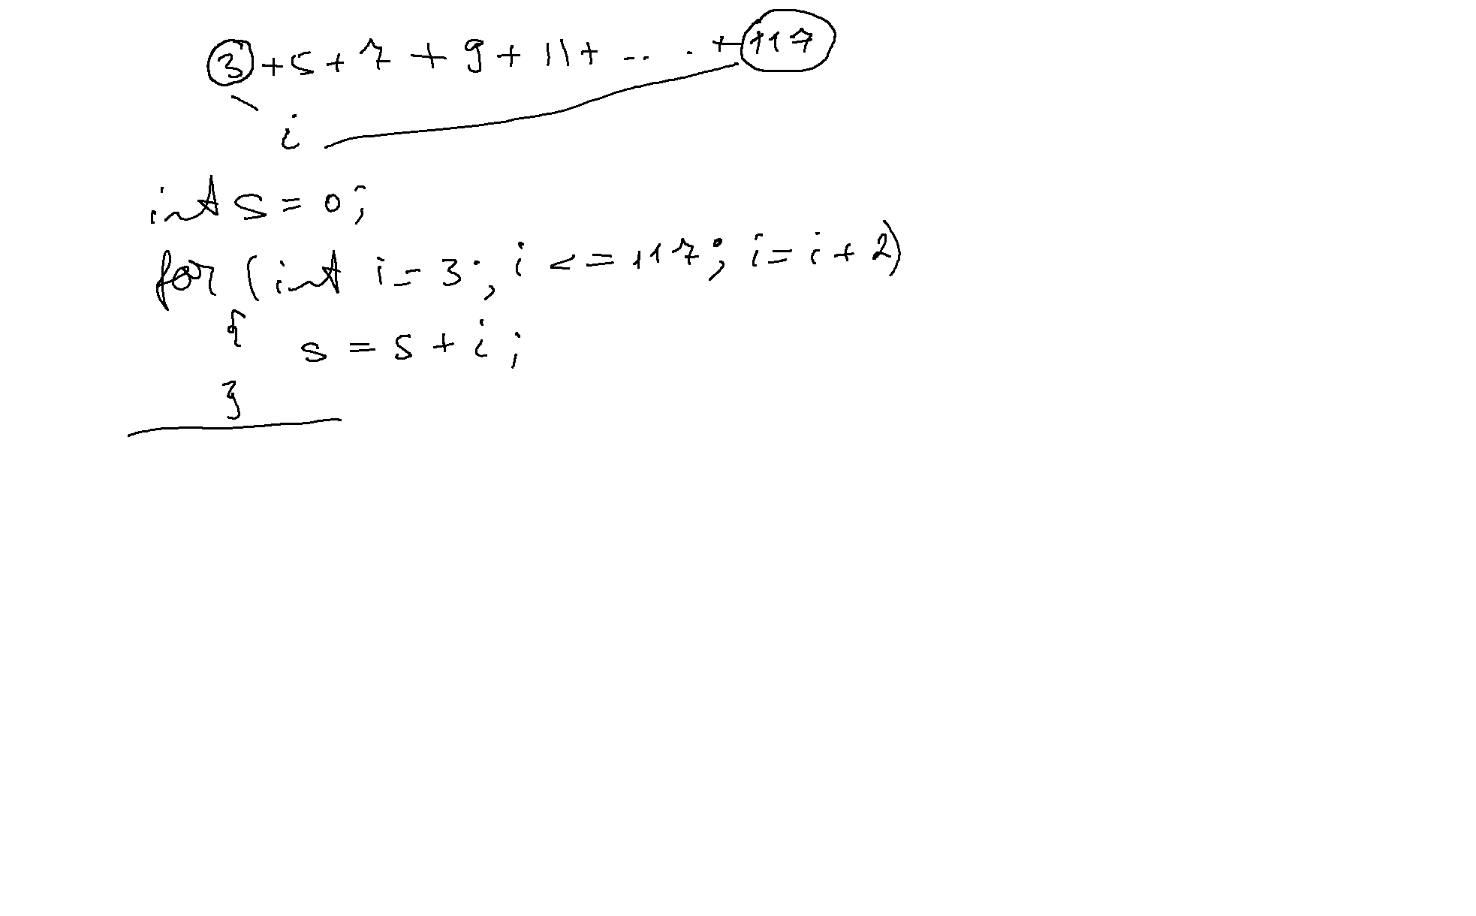 3 + 5 + 7 + 9 + 11 + ... . + 117
i
int s = 0;
for (int i = 3; i <= 117; i = i + 2)
{ s = s + i;
}